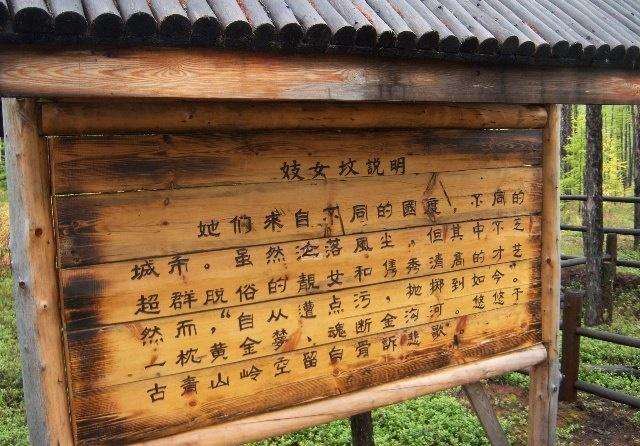 妓女坟説明
她们来自不同的國度，不同的
城市。虽然沦落風尘，但其中不乏
超群脱俗的靓女和儁秀清高的才艺。
然而，“自从遭点污，抛掷到如今”。
一枕黄金梦，魂断金沟河。悠悠千
古青山岭空留白骨訴悲歌